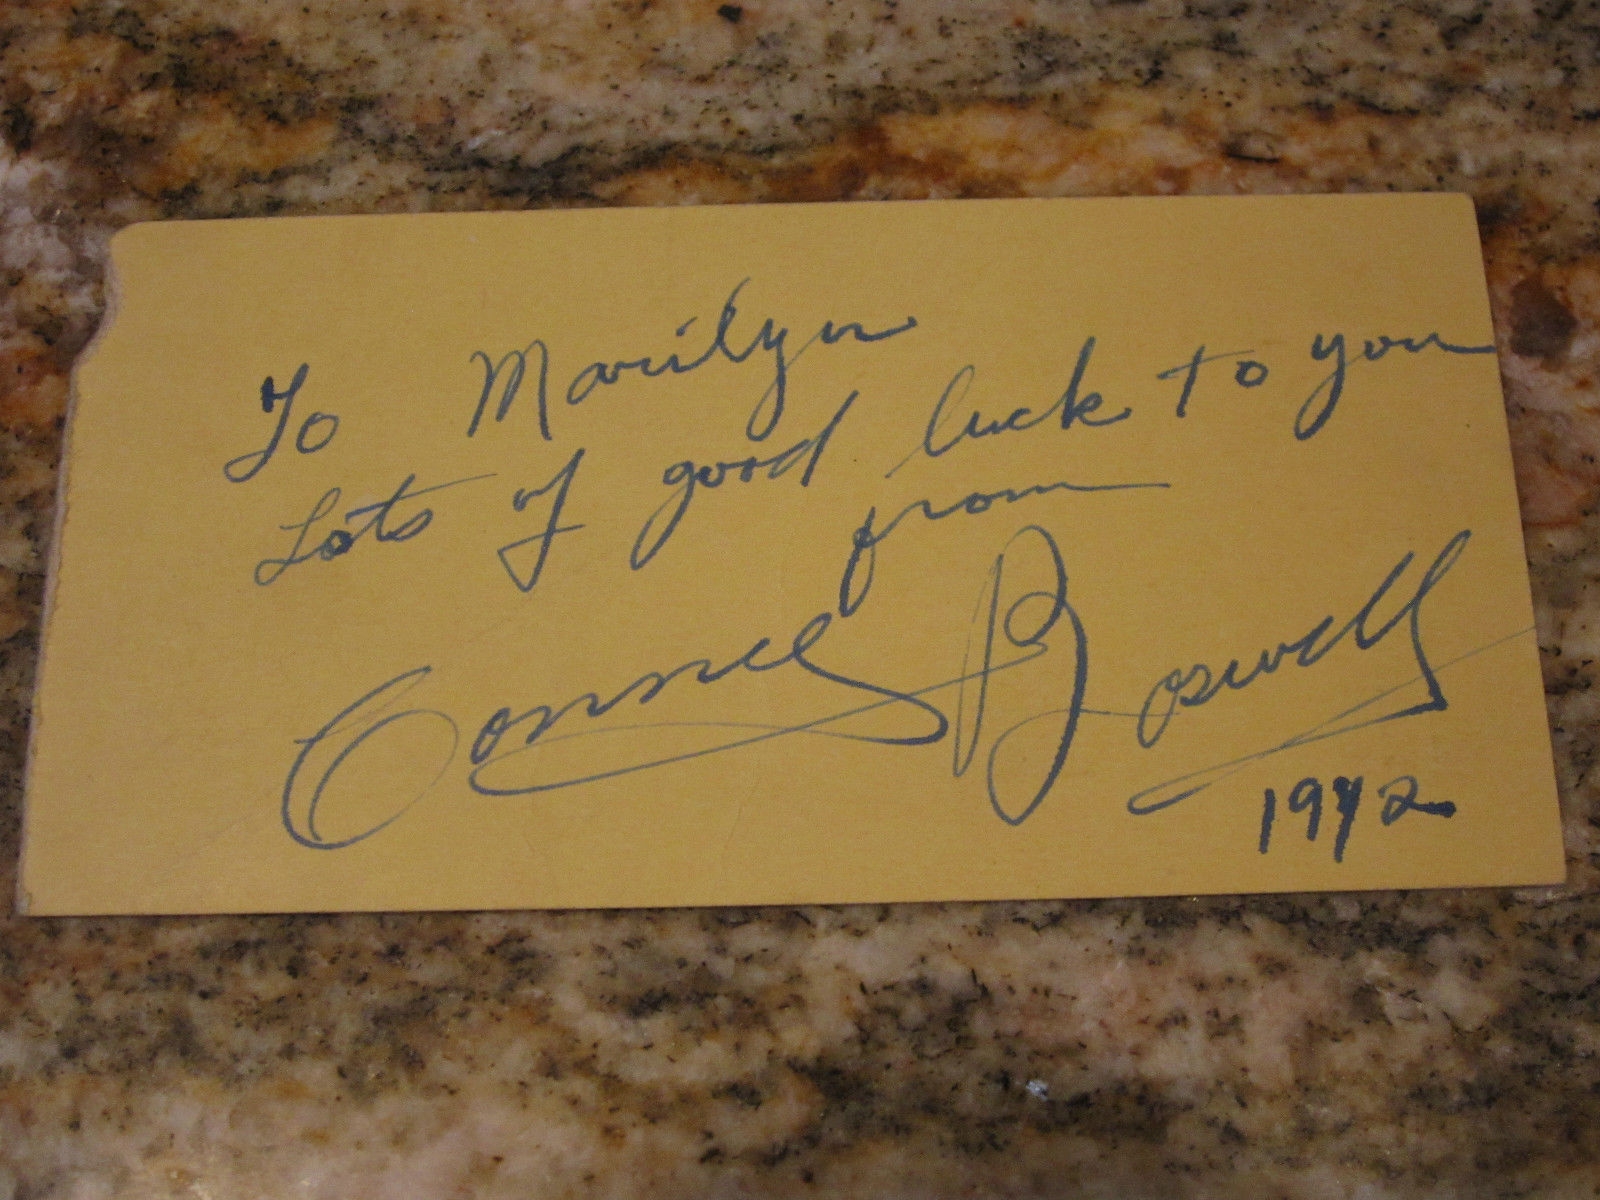 To Marilyn
Lots of good luck to you
from
Connee Boswell
1942